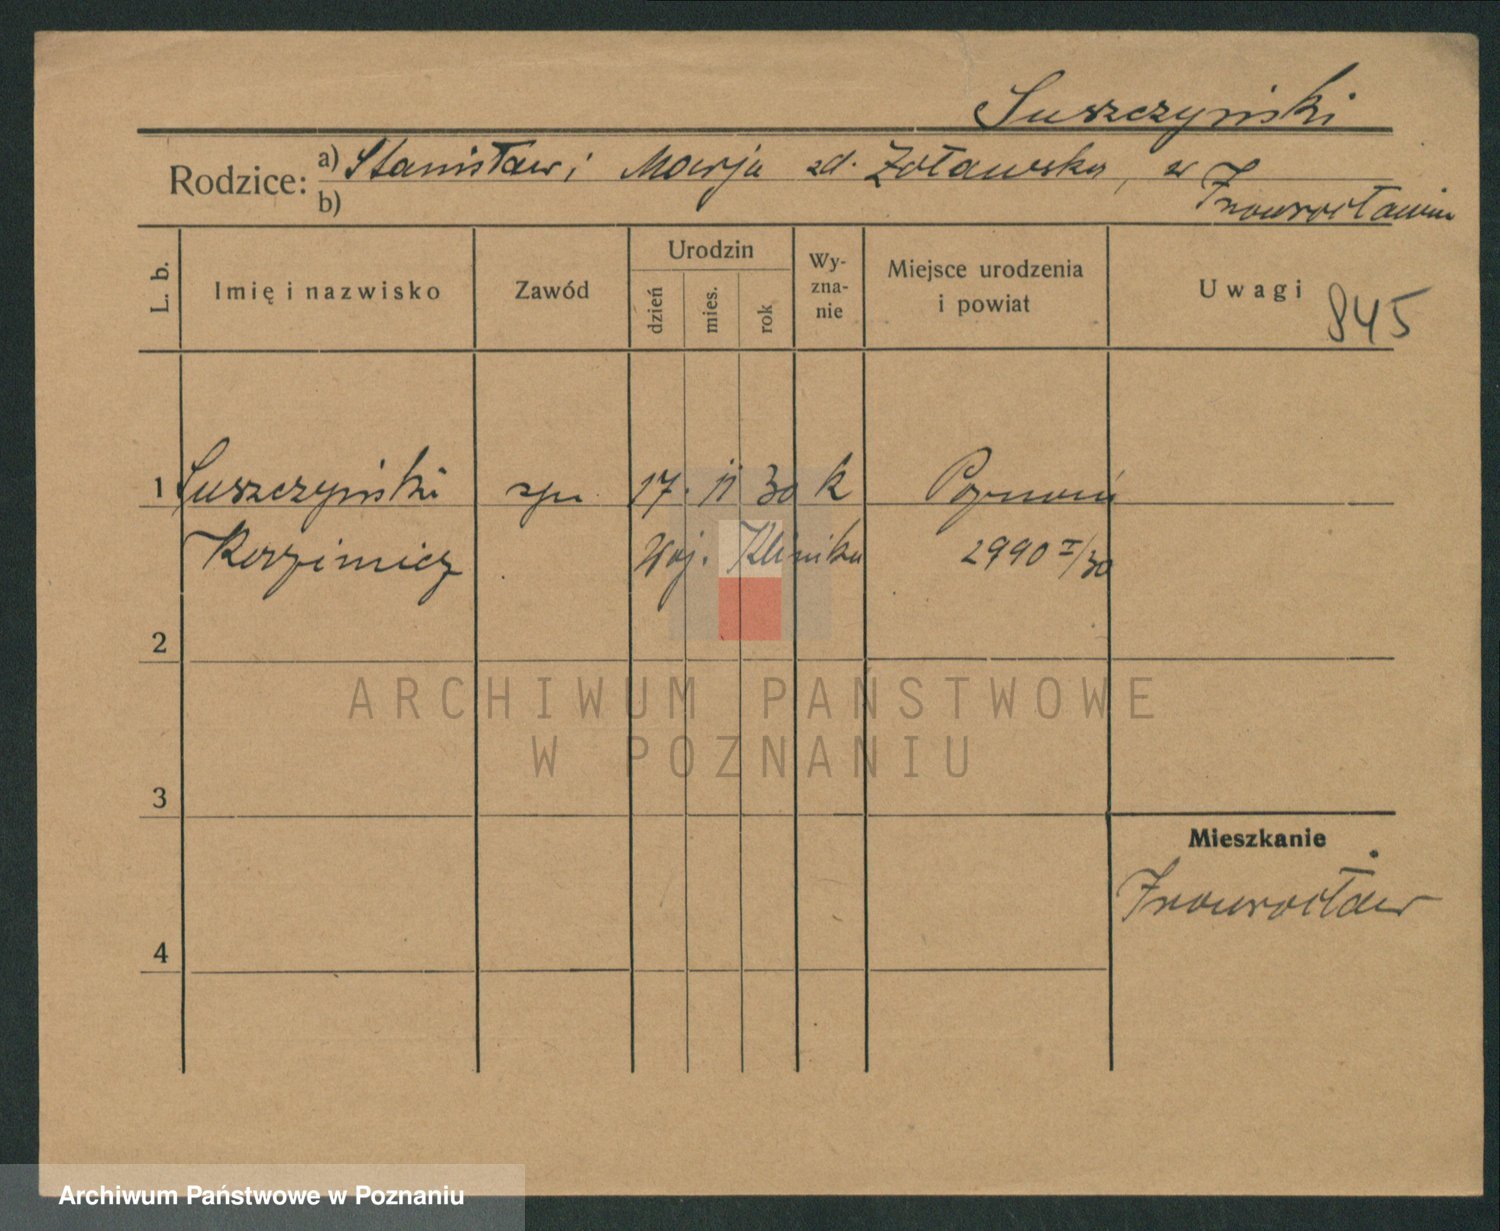 Suszczyński
Rodzice: a) Stanisław i Marja zd. Żoławska, w
b) Inowrocławiu
L. b. Imię i nazwisko Zawód Urodzin dzień mies. rok Wy-zna-nie Miejsce urodzenia i powiat Uwagi 845
1 Suszczyński syn 17. 11 30 k Poznań
Kazimierz Woj. Klinika 2990 I/30
2
3
Mieszkanie
Inowrocław
4
ARCHIWUM PAŃSTWOWE
W POZNANIU
Archiwum Państwowe w Poznaniu